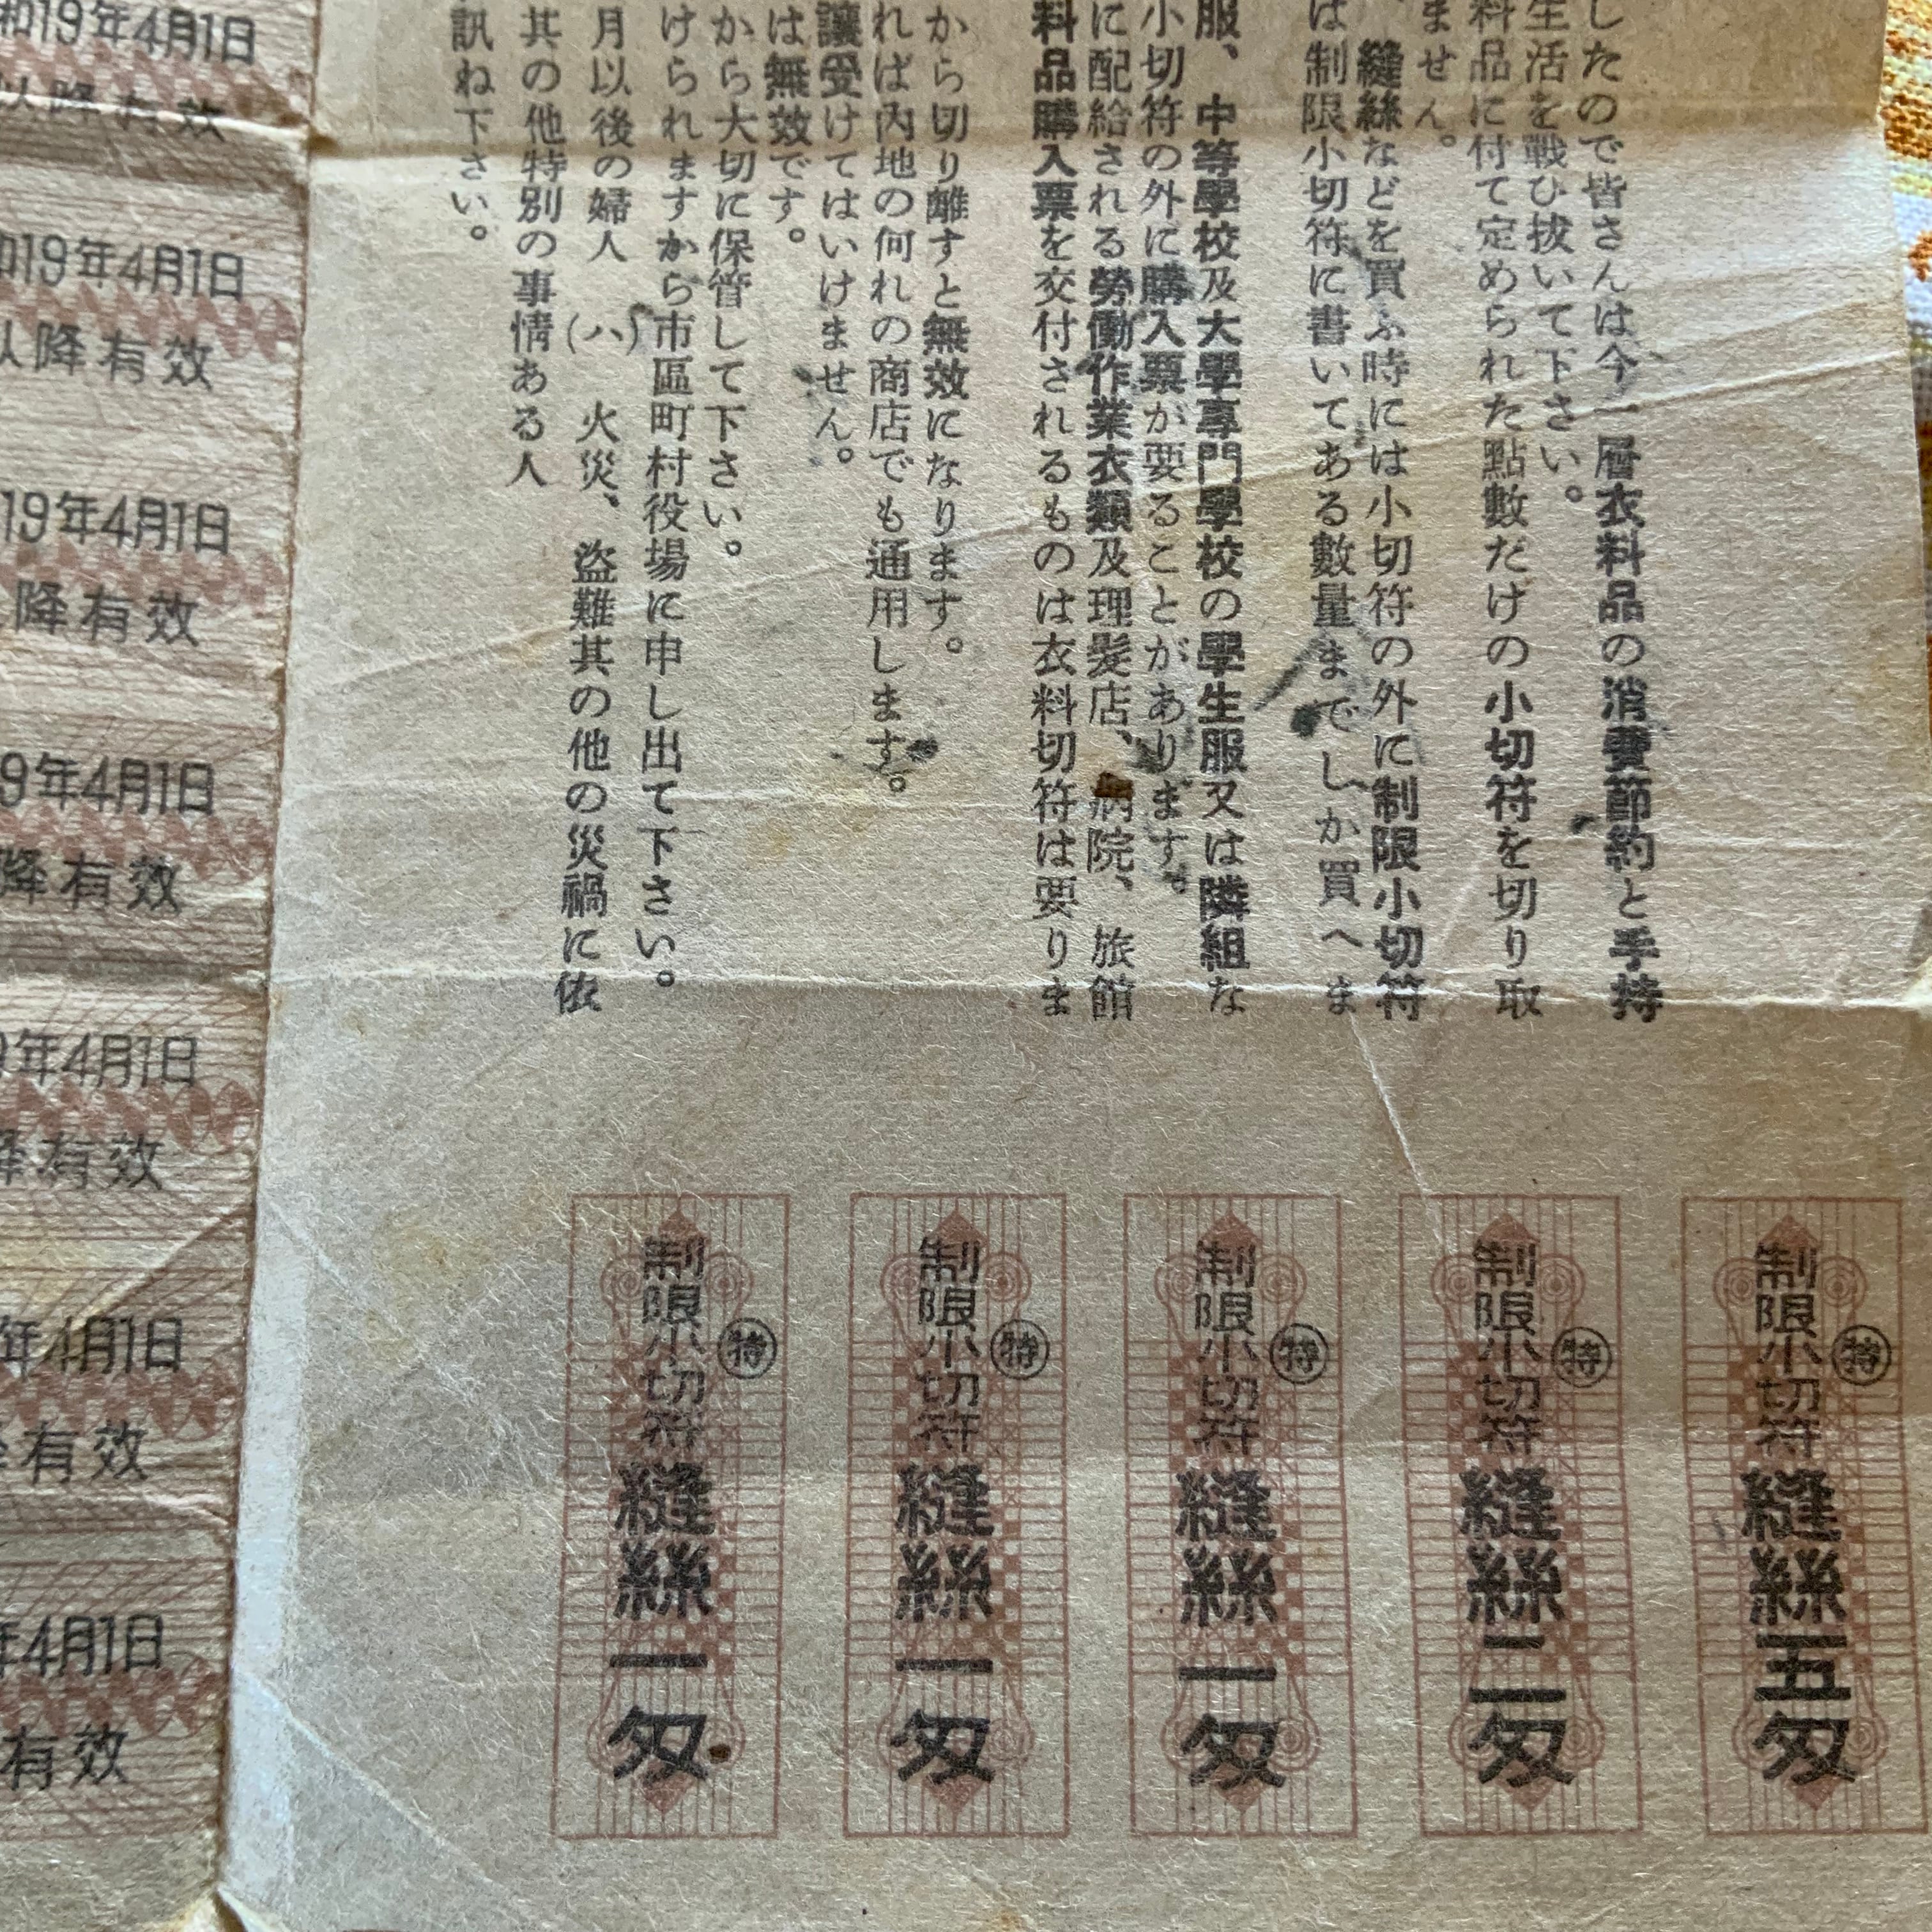 したので皆さんは今一層衣料品の消費節約と手持
生活を戰ひ拔いて下さい。
料品に付て定められた點數だけの小切符を切り取
ません。
縫絲などを買ふ時には小切符の外に制限小切符
は制限小切符に書いてある數量までしか買へま
服、中等學校及大學專門學校の學生服又は隣組な
小切符の外に購入票が要ることがあります。
に配給される勞働作業衣類及理髮店、病院、旅館
料品購入票を交付されるものは衣料切符は要りま
から切り離すと無效になります。
れば内地の何れの商店でも通用します。
讓受けてはいけません。
は無效です。
から大切に保管して下さい。
けられますから市區町村役場に申し出て下さい。
月以後の婦人 (ハ) 火災、盜難其の他の災禍に依
其の他特別の事情ある人
訊ね下さい。
制限小切符 特 縫絲五匁
制限小切符 特 縫絲二匁
制限小切符 特 縫絲一匁
制限小切符 特 縫絲一匁
制限小切符 特 縫絲一匁
和19年4月1日
以降有效
和19年4月1日
以降有效
19年4月1日
降有效
9年4月1日
降有效
9年4月1日
降有效
年4月1日
有效
年4月1日
有效